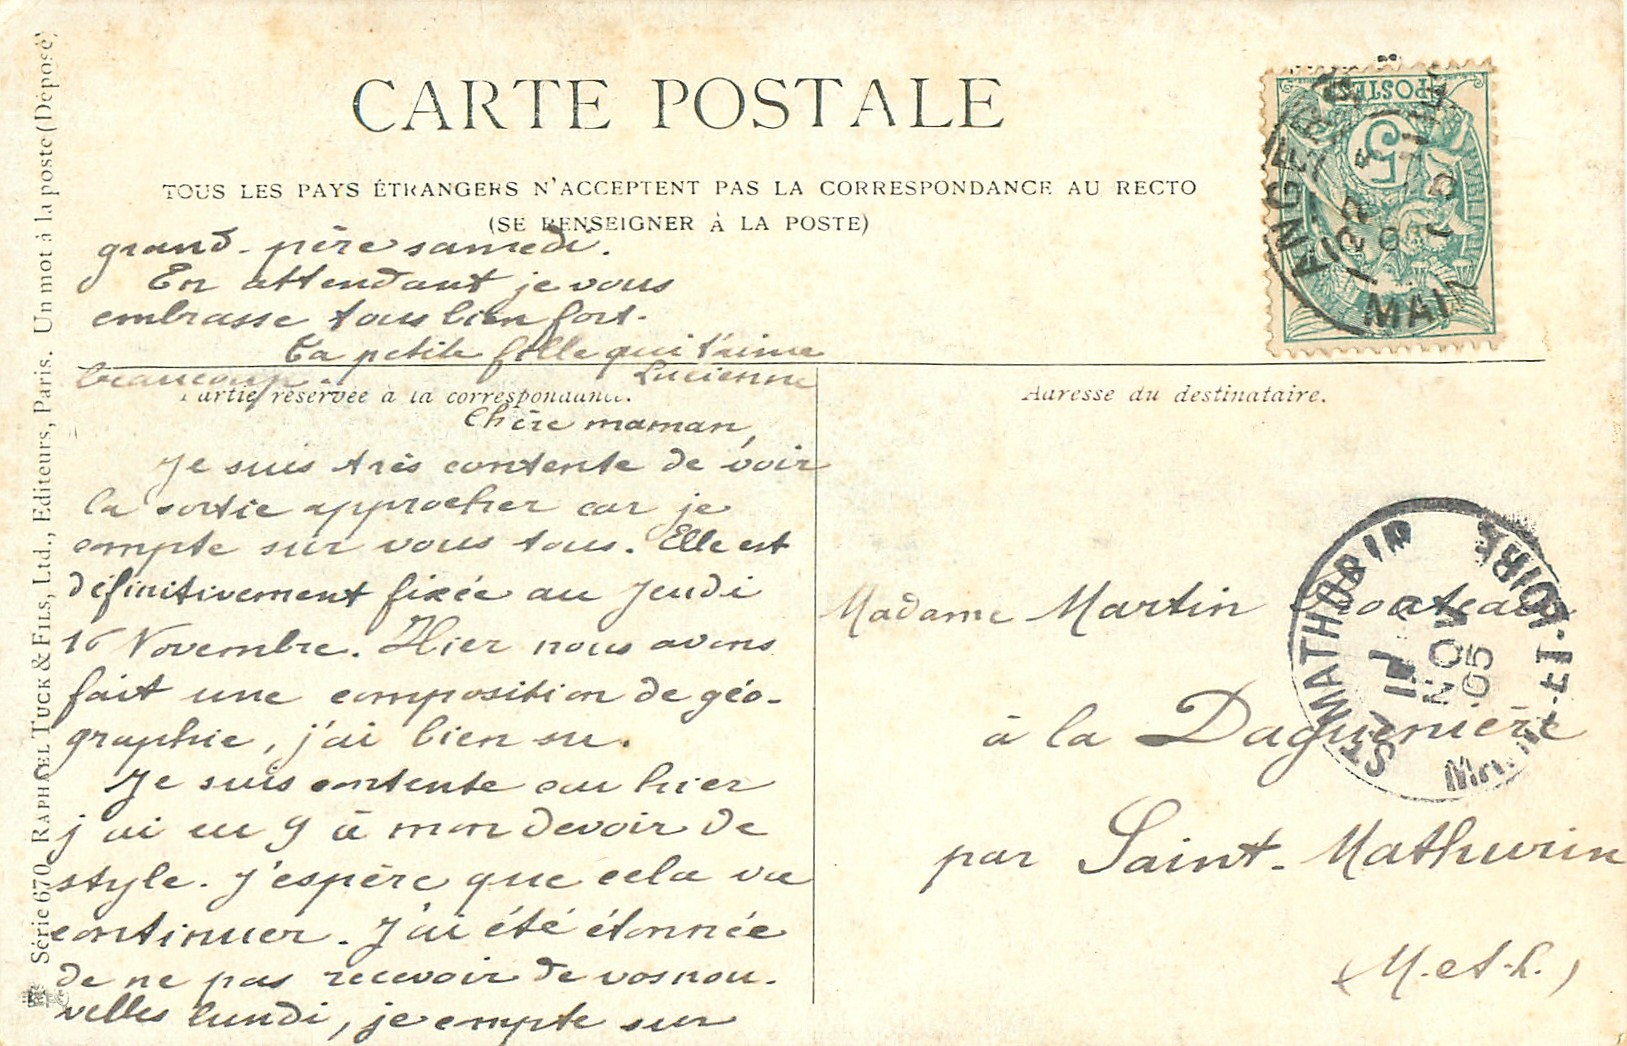 CARTE POSTALE
TOUS LES PAYS ÉTRANGERS N'ACCEPTENT PAS LA CORRESPONDANCE AU RECTO
(SE RENSEIGNER À LA POSTE)
Partie réservée à la correspondance.
Chère maman,
Je suis très contente de voir
la sortie approcher car je
compte sur vous tous. Elle est
définitivement fixée au Jeudi
16 Novembre. Hier nous avons
fait une composition de géo-
graphie, j'ai bien su.
Je suis contente car hier
j'ai eu 9 à mon devoir de
style. J'espère que cela va
continuer. J'ai été étonnée
de ne pas recevoir de vos nou-
velles lundi, je compte sur
grand-père samedi.
En attendant je vous
embrasse tous bien fort.
Ta petite fille qui t'aime
beaucoup. Lucienne
Adresse du destinataire.
Madame Martin
à la Daguenière
par Saint-Mathurin
(M.et-L.)
POSTES
5
ANGERS
MAI
ST MATHURIN
NOV
05
MAINE-ET-LOIRE
Série 670, RAPHAEL TUCK & FILS, Ltd., Editeurs, Paris. Un mot à la poste (Déposé)